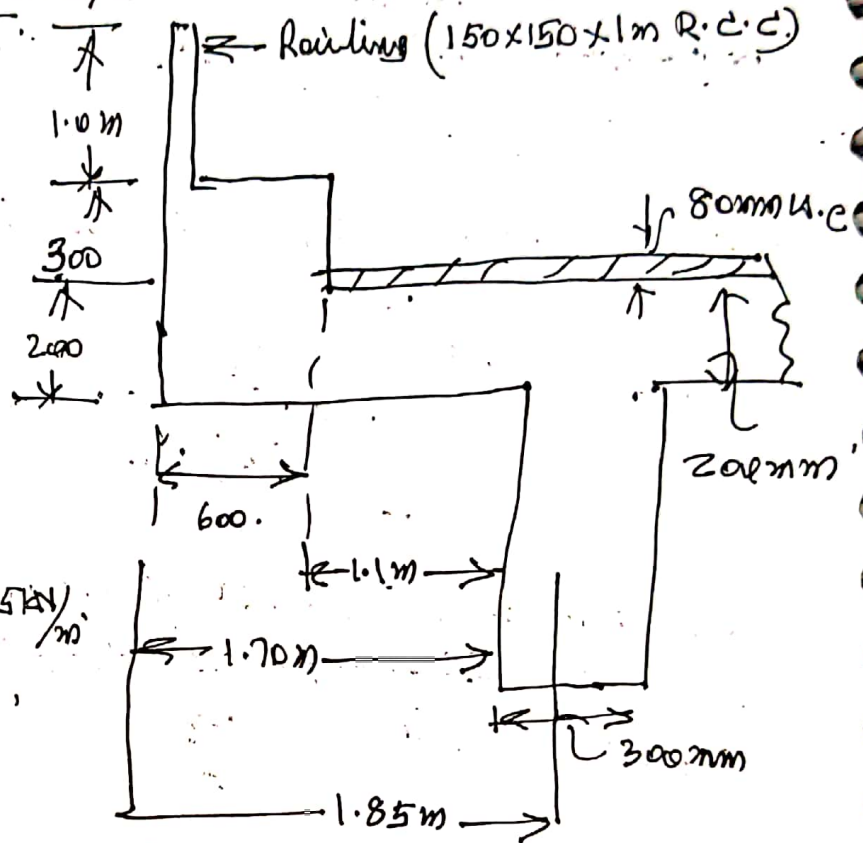 Railing (150x150x1m R.C.C.)
1.0 m
80mm w.c
300
200
200mm
600.
1.1m
5kN/m²
1.70m
300mm
1.85m